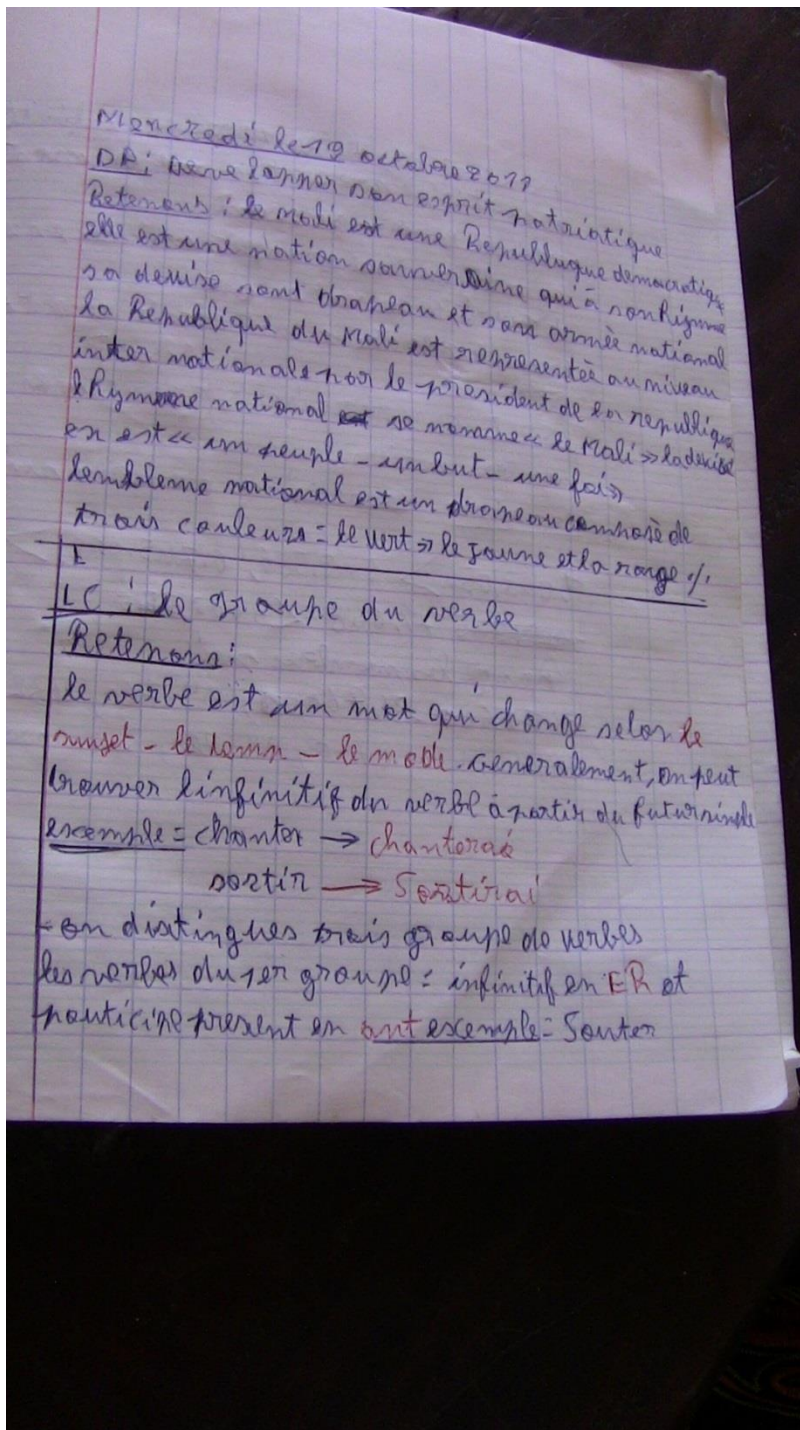 Mercredi le 19 octobre 2011
DP: Developper son esprit patriotique
Retenons: le mali est une Republuque democratique
elle est une nation souveraine qui à son Hymne
sa devise sont drapeau et sons armée national
la Republique du Mali est representée au niveau
internationale par le president de la republique
l'hymne national se nomme « le Mali » la devise
en est « un peuple - un but - une fois »
lembleme national est un drapeau composé de
trois couleurs = le vert » le jaune et la rouge ./.
L
LC : le groupe du verbe
Retenons:
le verbe est un mot qui change selon le
sujet - le temp - le mode. Generalement, on peut
trouver linfinitif du verbe à partir du futur simple
exemple = chanter → chanterai
sortir → Sortirai
- on distingues trois groupe de verbes
les verbes du 1er groupe = infinitif en ER et
participe present en ant exemple = Sauter